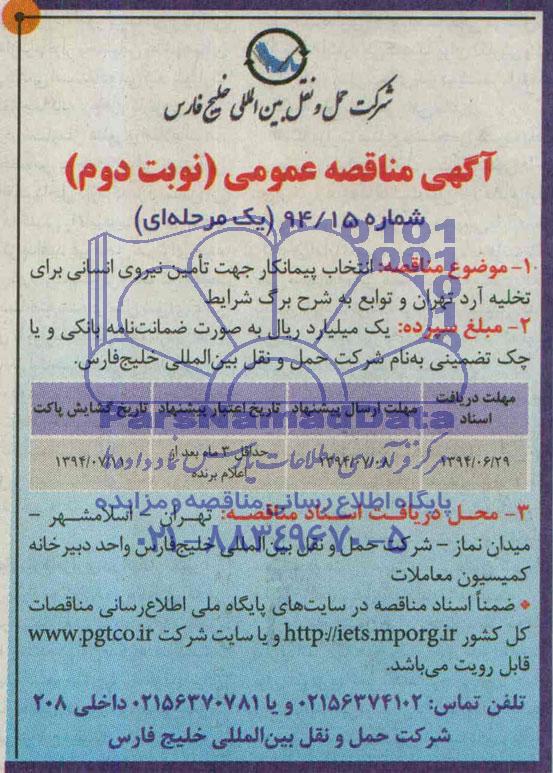 شرکت حمل و نقل بین‌المللی خلیج فارس
آگهی مناقصه عمومی (نوبت دوم)
شماره ۹۴/۱۵ (یک مرحله‌ای)
۱- موضوع مناقصه: انتخاب پیمانکار جهت تأمین نیروی انسانی برای
تخلیه آرد تهران و توابع به شرح برگ شرایط
۲- مبلغ سپرده: یک میلیارد ریال به صورت ضمانت‌نامه بانکی و یا
چک تضمینی به‌نام شرکت حمل و نقل بین‌المللی خلیج‌فارس.
مهلت دریافت اسناد | مهلت ارسال پیشنهاد | تاریخ اعتبار پیشنهاد | تاریخ گشایش پاکت
۱۳۹۴/۰۶/۲۹ | ۱۳۹۴/۰۷/۰۸ | حداقل ۳ ماه بعد از اعلام برنده | ۱۳۹۴/۰۷/۱۱
ParsNamadData
مرکز فرآوری اطلاعات پارس نماد داده‌ها
پایگاه اطلاع رسانی مناقصه و مزایده
۰۲۱-۸۸۳۴۹۶۷۰-۵
۳- محل دریافت اسناد مناقصه: تهران - اسلامشهر -
میدان نماز - شرکت حمل و نقل بین‌المللی خلیج‌فارس واحد دبیرخانه
کمیسیون معاملات
* ضمناً اسناد مناقصه در سایت‌های پایگاه ملی اطلاع‌رسانی مناقصات
کل کشور http://iets.mporg.ir و یا سایت شرکت www.pgtco.ir
قابل رویت می‌باشد.
تلفن تماس: ۰۲۱۵۶۳۷۴۱۰۲ و یا ۰۲۱۵۶۳۷۰۷۸۱ داخلی ۲۰۸
شرکت حمل و نقل بین‌المللی خلیج فارس